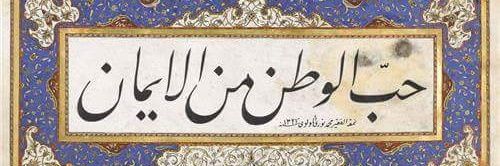 حبّ الوطن من الايمان